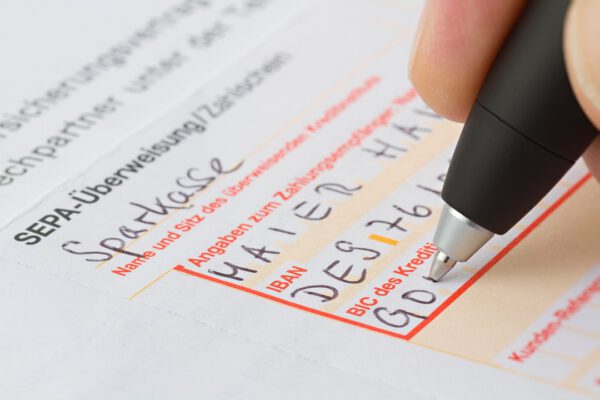 sicherungsvertrag
echpartner unter der Te
SEPA-Überweisung/Zahlschein
Sparkasse
Name und Sitz des überweisenden Kreditinstituts
Angaben zum Zahlungsempfänger: Na
MAIER HA
IBAN
DES 176
BIC des Krediti
GO
Kunden-Referen